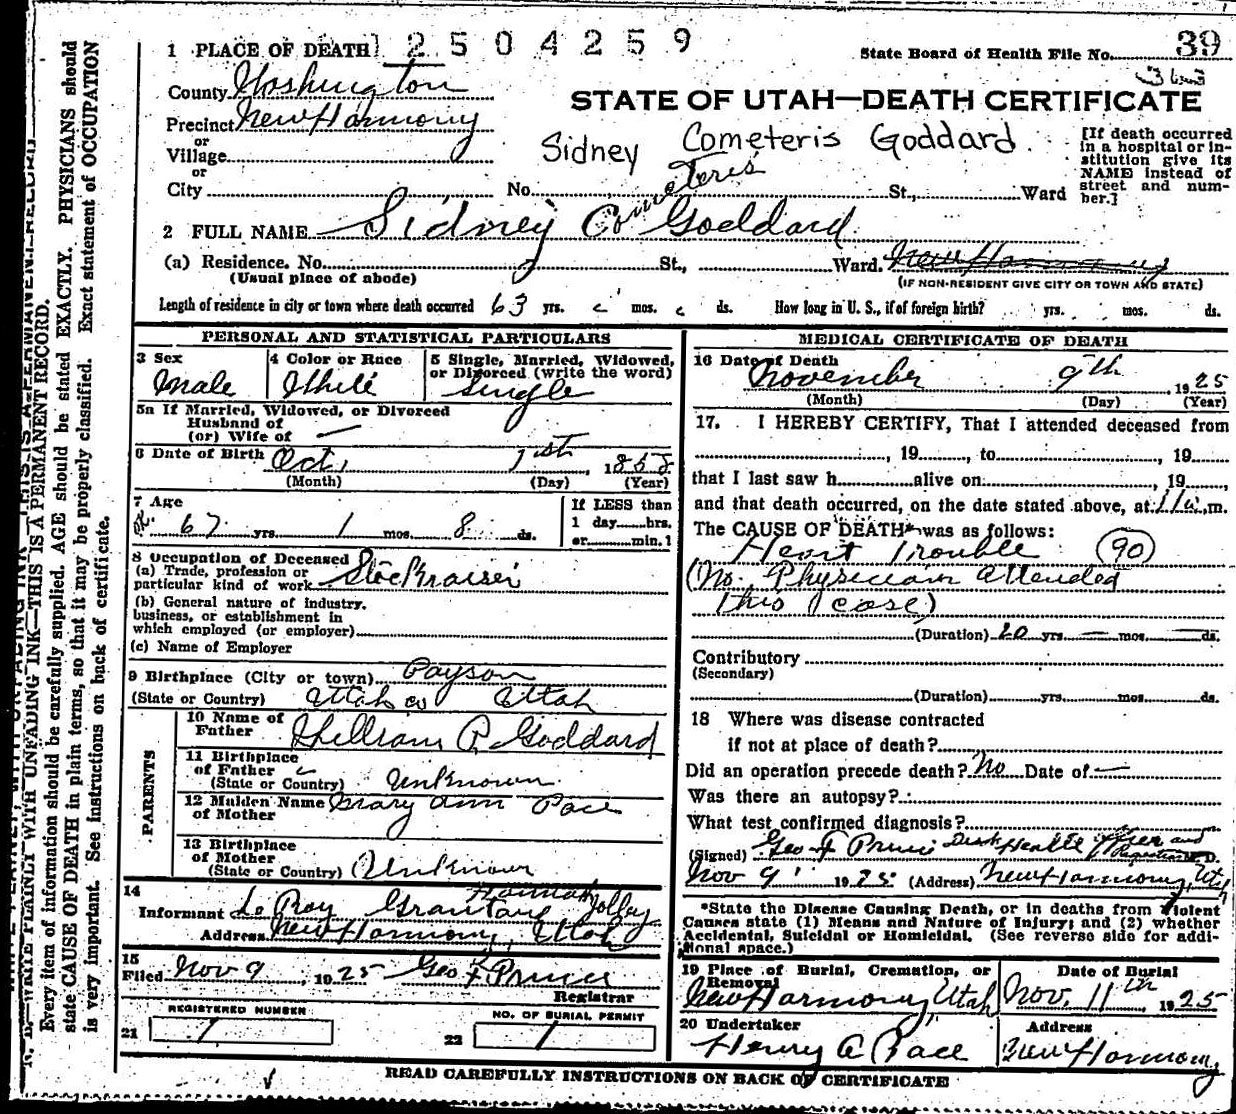 1 PLACE OF DEATH 2504259
State Board of Health File No. 39
363
County Washington
STATE OF UTAH—DEATH CERTIFICATE
Precinct New Harmony
or
Village
or
City
Sidney Cometeris Goddard
[If death occurred in a hospital or institution give its NAME instead of street and number.]
No. St., Ward
Cometeris
2 FULL NAME Sidney Co Goddard
(a) Residence. No. St., Ward. New Harmony
(Usual place of abode) (IF NON-RESIDENT GIVE CITY OR TOWN AND STATE)
Length of residence in city or town where death occurred 63 yrs. mos. ds. How long in U. S., if of foreign birth? yrs. mos. ds.
PERSONAL AND STATISTICAL PARTICULARS
3 Sex 4 Color or Race 5 Single, Married, Widowed, or Divorced (write the word)
Male White Single
5a If Married, Widowed, or Divorced
Husband of
(or) Wife of —
6 Date of Birth Oct, 1st, 1858
(Month) (Day) (Year)
7 Age If LESS than
1 day hrs.
or min.
67 yrs. 1 mos. 8 ds.
8 Occupation of Deceased
(a) Trade, profession or
particular kind of work Stockraiser
(b) General nature of industry.
business, or establishment in
which employed (or employer)
(c) Name of Employer
9 Birthplace (City or town) Payson
(State or Country) Utah co Utah
PARENTS
10 Name of
Father William P. Goddard
11 Birthplace
of Father
(State or Country) Unknown
12 Maiden Name
of Mother Mary Ann Pace
13 Birthplace
of Mother
(State or Country) Unknown
14
Informant Le Roy Grant and Hannah Jolley
Address New Harmony, Utah
15
Filed Nov 9, 1925 Geo F Prince
Registrar
REGISTERED NUMBER NO. OF BURIAL PERMIT
21 1 22 1
MEDICAL CERTIFICATE OF DEATH
16 Date of Death
November 9th, 1925
(Month) (Day) (Year)
17. I HEREBY CERTIFY, That I attended deceased from
, 19, to, 19
that I last saw h alive on, 19,
and that death occurred, on the date stated above, at 11 a.m.
The CAUSE OF DEATH* was as follows:
Heart Trouble (90)
(No. Physician attended
this case)
(Duration) 20 yrs. — mos. — ds.
Contributory
(Secondary)
(Duration) yrs. mos. ds.
18 Where was disease contracted
if not at place of death?
Did an operation precede death? No Date of —
Was there an autopsy?
What test confirmed diagnosis?
(Signed) Geo F Prince Health Officer and M. D.
Nov 9 1925 (Address) New Harmony, Utah
*State the Disease Causing Death, or in deaths from Violent
Causes state (1) Means and Nature of Injury; and (2) whether
Accidental, Suicidal or Homicidal. (See reverse side for addi-
tional space.)
19 Place of Burial, Cremation, or
Removal Date of Burial
New Harmony, Utah Nov. 11th 1925
20 Undertaker Address
Henry A Pace New Harmony
READ CAREFULLY INSTRUCTIONS ON BACK OF CERTIFICATE
WRITE PLAINLY WITH UNFADING INK—THIS IS A PERMANENT RECORD.
Every item of information should be carefully supplied. AGE should be stated EXACTLY. PHYSICIANS should
state CAUSE OF DEATH in plain terms, so that it may be properly classified. Exact statement of OCCUPATION
is very important. See instructions on back of certificate.